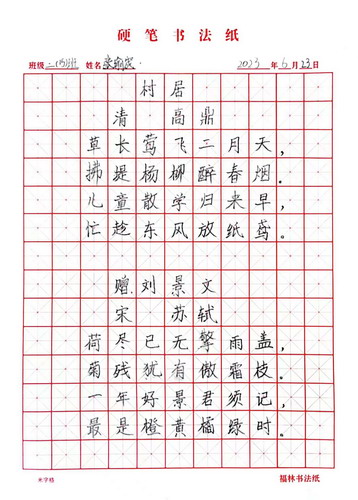 硬笔书法纸
班级 姓名 2023年6月23日
村居
清 高鼎
草长莺飞二月天,
拂堤杨柳醉春烟。
儿童散学归来早,
忙趁东风放纸鸢。
赠刘景文
宋 苏轼
荷尽已无擎雨盖,
菊残犹有傲霜枝。
一年好景君须记,
最是橙黄橘绿时。
米字格 福林书法纸